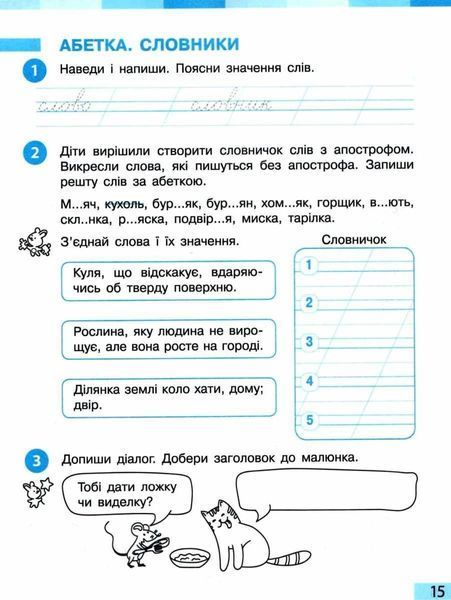 АБЕТКА. СЛОВНИКИ
1 Наведи і напиши. Поясни значення слів.
слово словник
2 Діти вирішили створити словничок слів з апострофом.
Викресли слова, які пишуться без апострофа. Запиши
решту слів за абеткою.
М...яч, кухоль, бур...як, бур...ян, хом...як, горщик, в...ють,
скл..нка, р...яска, подвір...я, миска, тарілка.
З’єднай слова ї їх значення.
Словничок
Куля, що відскакує, вдаряю-
чись об тверду поверхню.
Рослина, яку людина не виро-
щує, але вона росте на городі.
Ділянка землі коло хати, дому;
двір.
1
2
3
4
5
3 Допиши діалог. Добери заголовок до малюнка.
Тобі дати ложку
чи виделку?
15